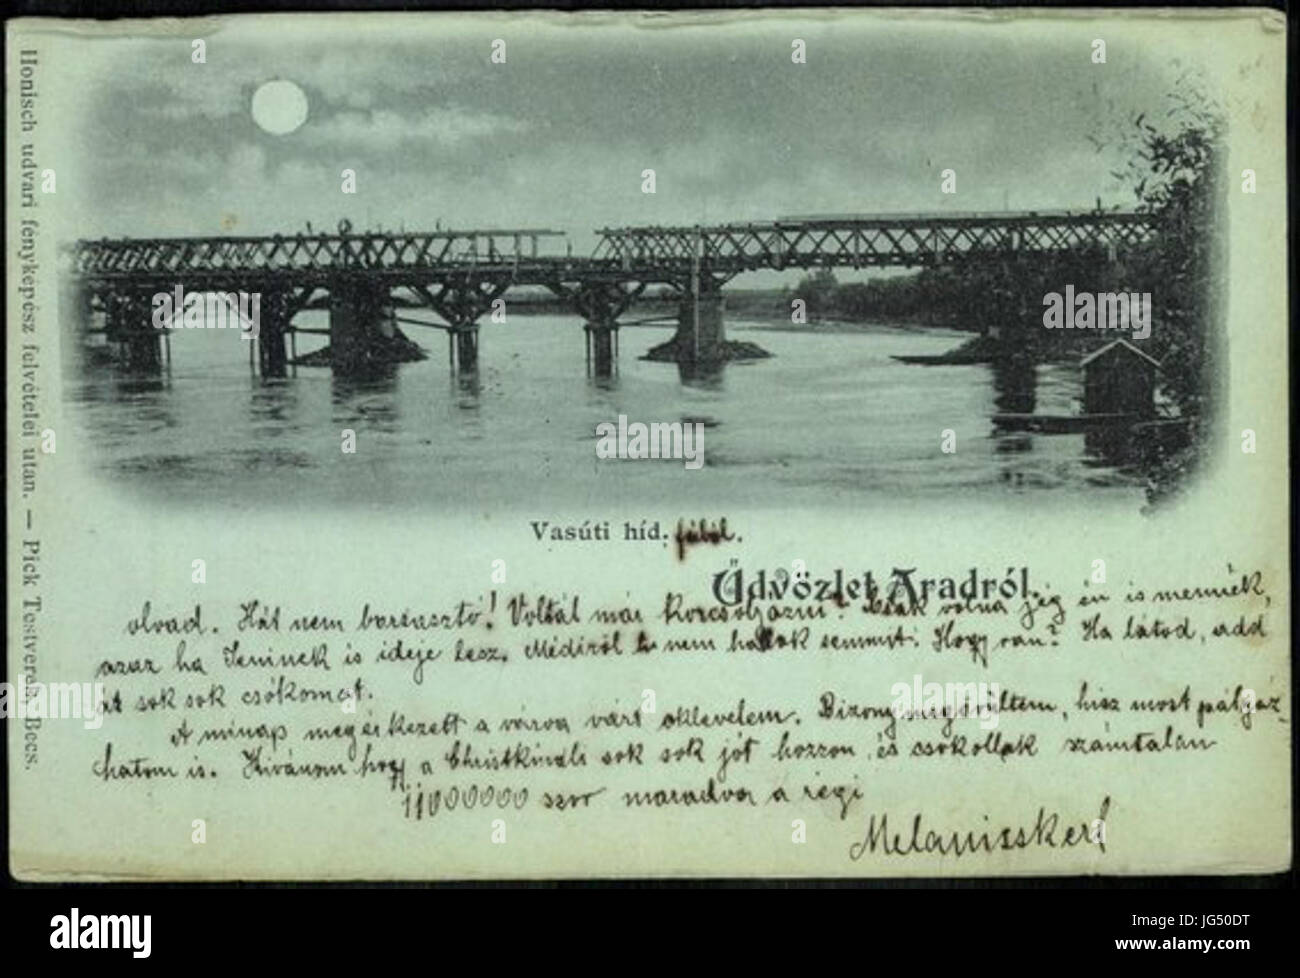 Honisch udvari fényképész felvételei után. — Pick Testverek, Bécs.
Vasúti híd. fából.
Üdvözlet Aradról.
olvad. Hát nem borzasztó! Voltál már korcsolyázni? Csak volna jég én is mennék,
azaz ha Jeninek is ideje lesz. Médiről nem hallok semmit. Hogy van? Ha látod, add
át sok sok csókomat.
A minap megérkezett a várva várt oklevelem. Bizony megőrültem, hisz most pályáz-
hatom is. Kívánom hogy a Christkindli sok sok jót hozzon és csókollak számtalan
11000000 szor maradva a régi
alamy
alamy
Image ID: JG50DT
www.alamy.com